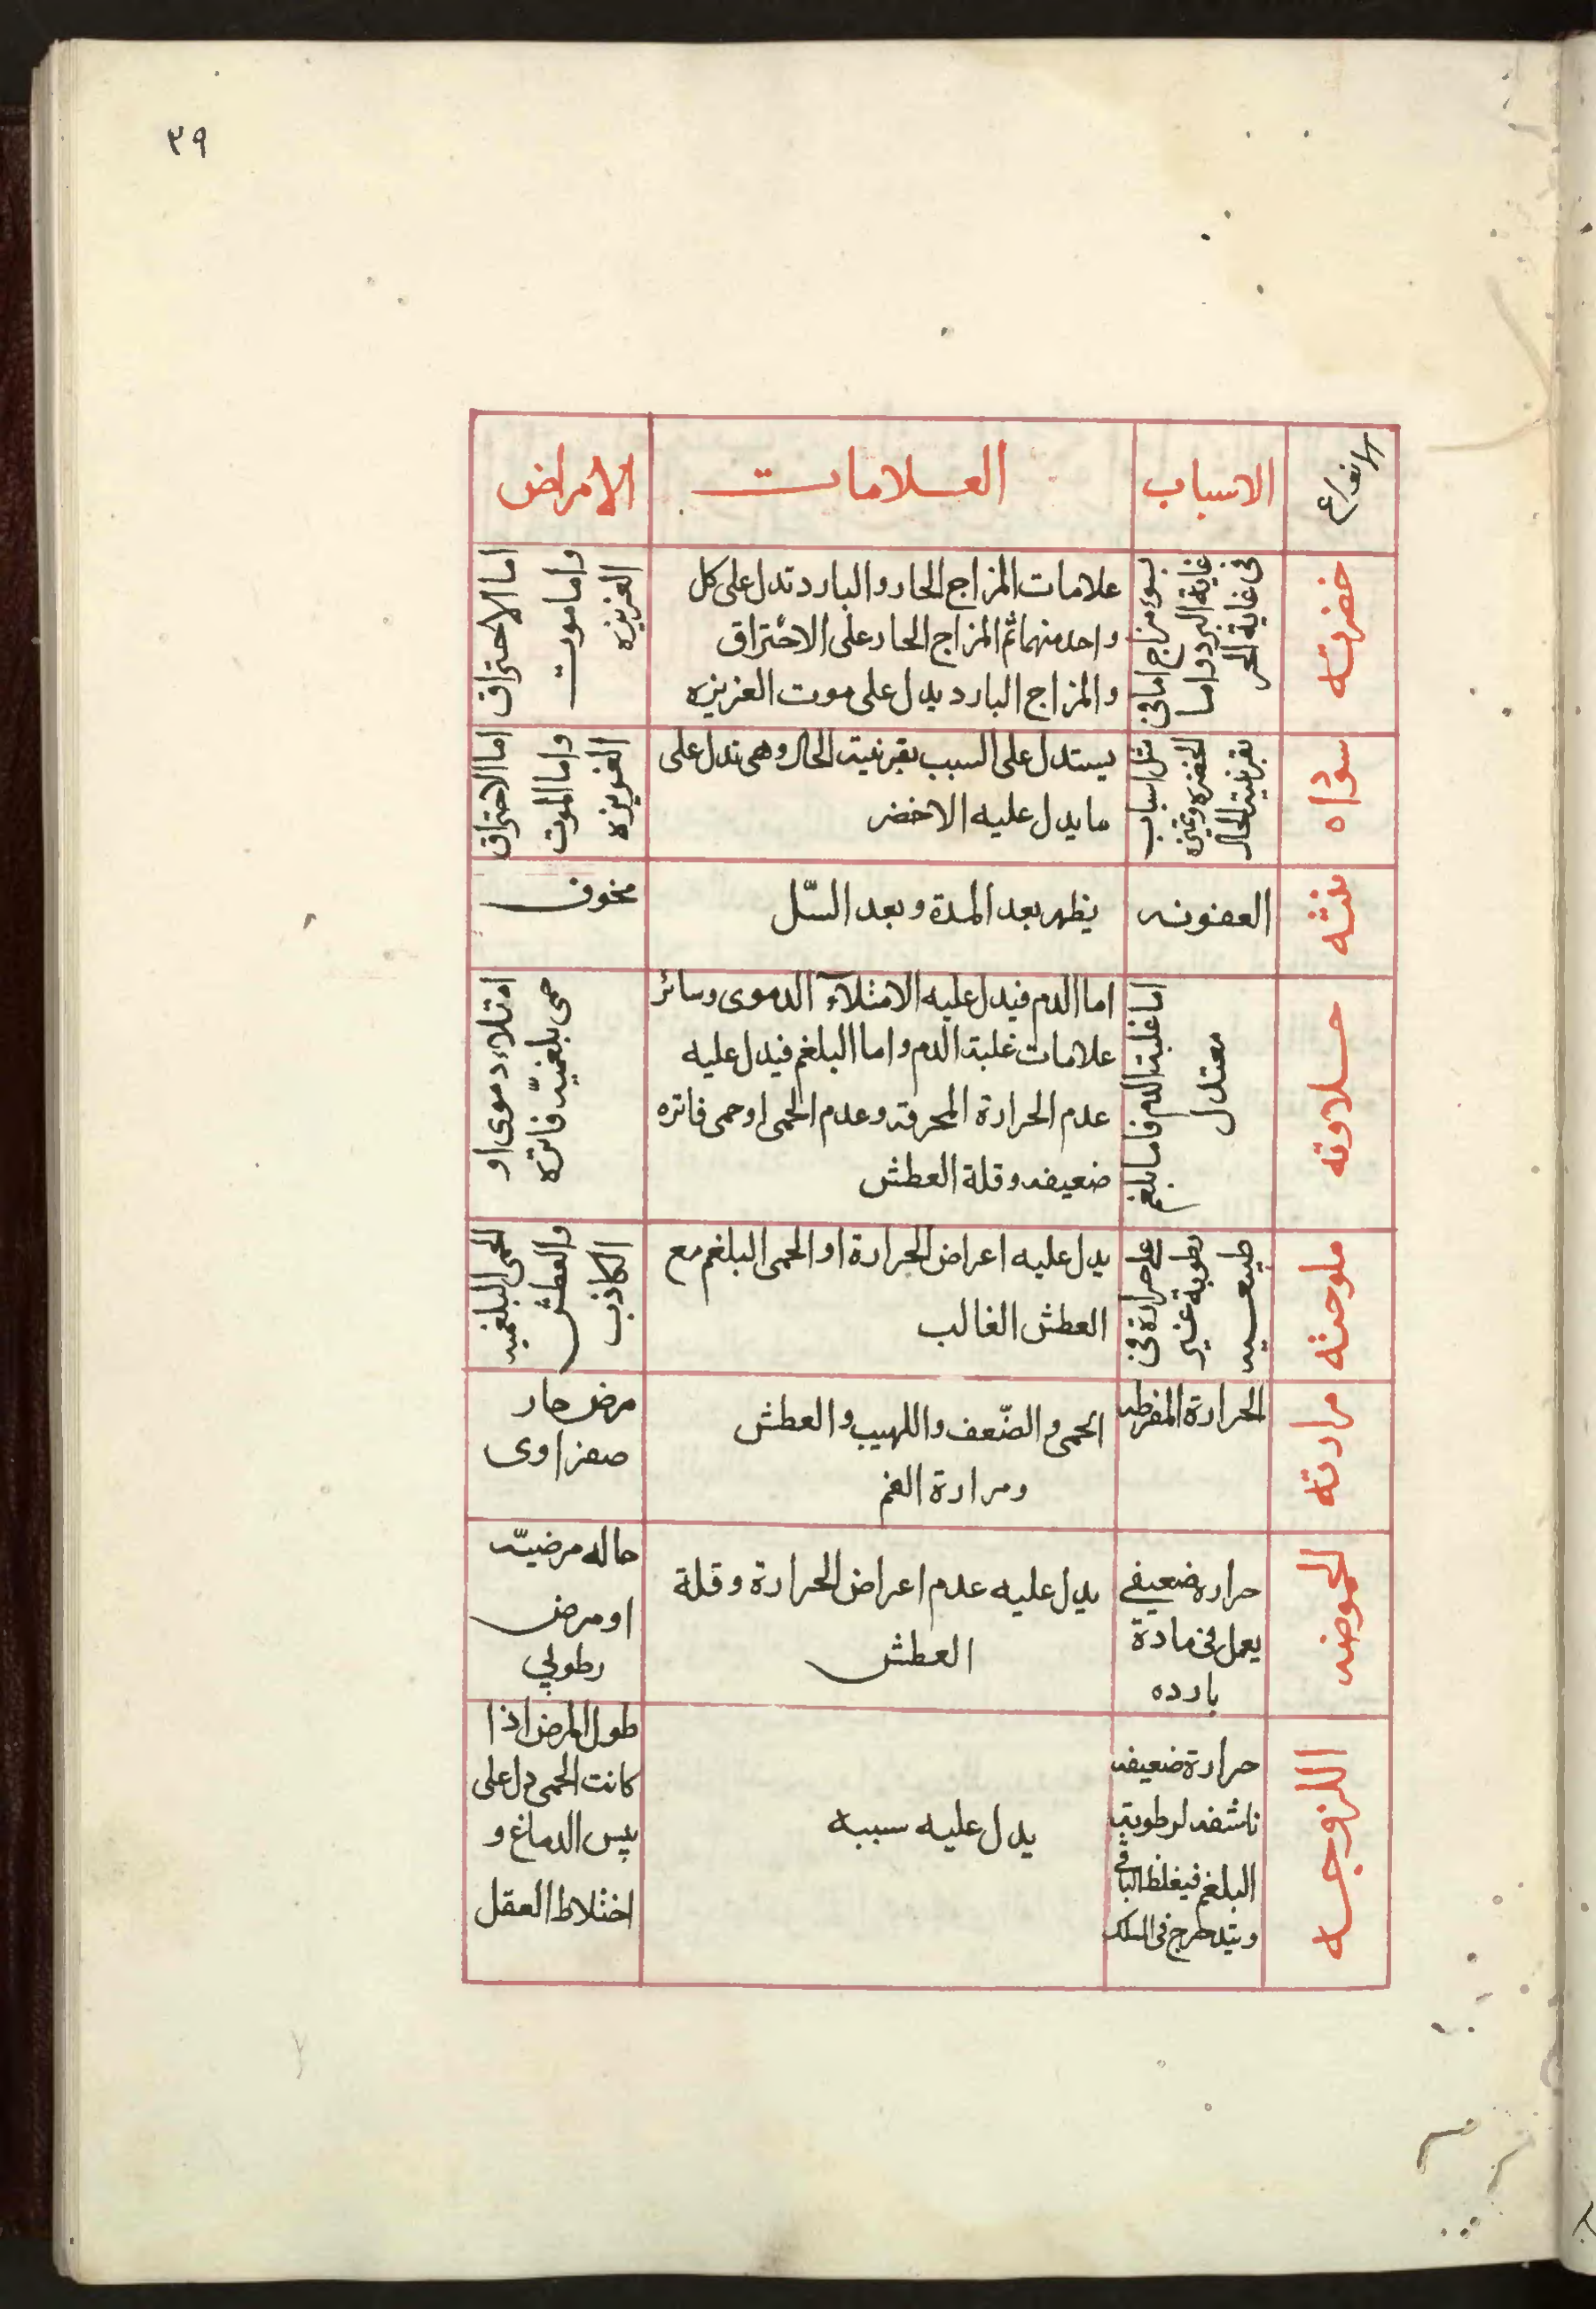 ٣٩
الانواع
الاسباب
العلامات
الامراض
خضرته
سوء مزاج اما في
غاية البرد واما
في غاية الحر
علامات المزاج الحار والبارد تدل على كل
واحد منهما ثم المزاج الحار على الاحتراق
والمزاج البارد يدل على موت الغريزه
اما الاحتراق
واما موت
الغريزه
سوداه
مثل اسباب
الخضره وغيره
بقرينة الحال
يستدل على السبب بقرنيته الحال وهى تدل على
ما يدل عليه الاخضر
اما الاحتراق
واما الموت
الغريزه
نتنه
العفونه
يظهر بعد المدة وبعد السّل
مخوف
حلاوته
اما غلبة الدم فاما بلغم
معتدل
اما الدم فيدل عليه الامتلآء الدموى وسائر
علامات غلبة الدم واما البلغم فيدل عليه
عدم الحرارة المحرقه وعدم الحمى او حمى فاتره
ضعيفه وقلة العطش
امتلاء دموى او
حمى بلغميّه فاتره
ملوحته
على حرارة في
رطوبة غير
طبيعيه
يدل عليه اعراض الحرارة او الحمى البلغم مع
العطش الغالب
الحمى البلغميه
والعطش
الكاذب
مرارته
الحرارة المفرطه
الحمى والضّعف واللهيب والعطش
ومرارة الفم
مرض حار
صفراوى
الحموضه
حرارة ضعيفي
يعمل في مادة
بارده
يدل عليه عدم اعراض الحرارة وقلة
العطش
حاله مرضيّه
او مرض
رطوبي
اللزوجه
حرارة ضعيفه
ناشفه لرطوبة
البلغم فيغلظ الباقي
ويتدحرج في السلك
يدل عليه سببه
طول المرض اذا
كانت الحمى دل على
يبس الدماغ و
اختلاط العقل